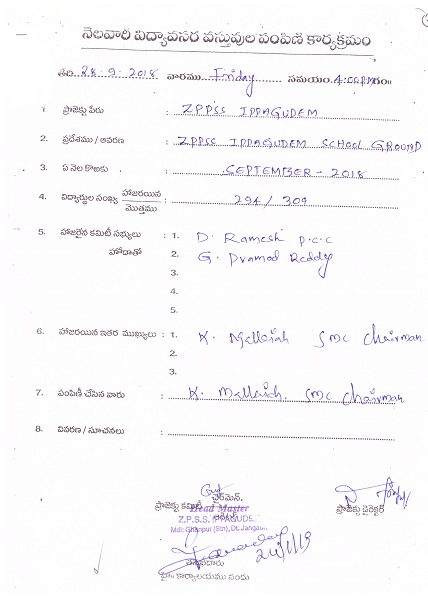 నెలవారి విద్యావసర వస్తువుల పంపిణి కార్యక్రమం
తేది. 28-9-2018 వారము. Friday సమయం. 4:00PM గం॥
1. ప్రాజెక్టు పేరు : ZPPSS IPPAGUDEM
2. ప్రదేశము / ఆవరణ : ZPPSS IPPAGUDEM SCHOOL GROUND
3. ఏ నెల కొఱకు : SEPTEMBER - 2018
4. విద్యార్థుల సంఖ్య హాజరయిన / మొత్తము : 294 / 309
5. హాజరైన కమిటీ సభ్యులు : 1. D. Ramesh P.C.C
హోదాతో 2. G. Pramod Reddy
3.
4.
5.
6. హాజరయిన ఇతర ముఖ్యులు : 1. K. Mallaiah SMC Chairman
2.
3.
7. పంపిణీ చేసిన వారు : K. Mallaiah. SMC Chairman
8. వివరణ / సూచనలు :
ప్రాజెక్టు కమిటీ ఛైర్మెన్.
Head Master
Z.P.S.S. IPPAGUDE
Mdl: Ghanpur (Stn), Dt. Jangaon.
ప్రాజెక్టు డైరెక్టర్
24/1/19
హై॥ కార్యాలయము నందు